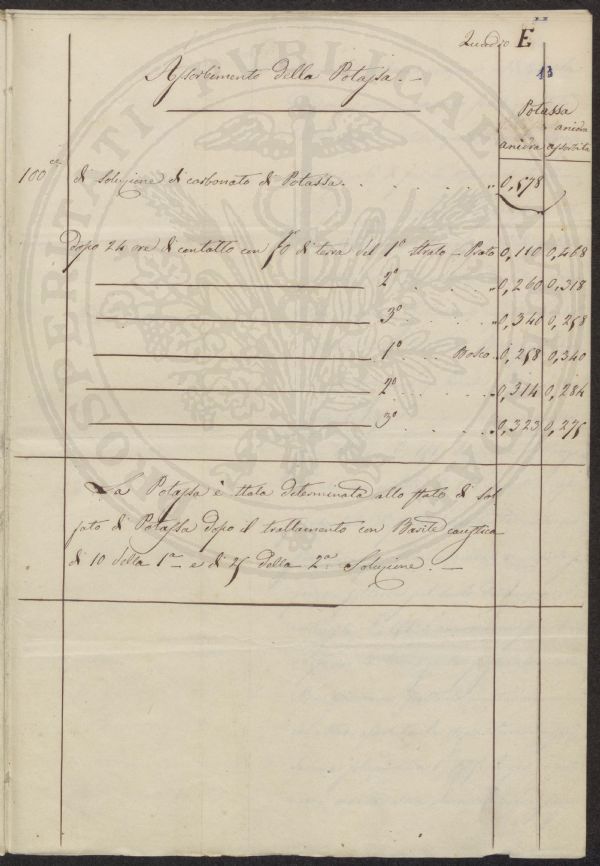 Quadro E
13
Assorbimento della Potassa. —
Potassa
anidra
anidra assorbita
100 cc di soluzione di carbonato di Potassa . . . . . . „ 0,578
dopo 24 ore di contatto con 50 di terra del 1° strato – Prato 0,110 0,468
2° . . . . „ 0,260 0,318
3° . . . . „ 0,340 0,258
1° . . . Bosco „ 0,258 0,340
2° . . . . „ 0,314 0,284
3° . . . . „ 0,323 0,275
La Potassa è stata determinata allo stato di sol
fato di Potassa dopo il trattamento con Barite caustica
di 10 della 1a e di 25 della 2a Soluzione. —
PUBLICAE